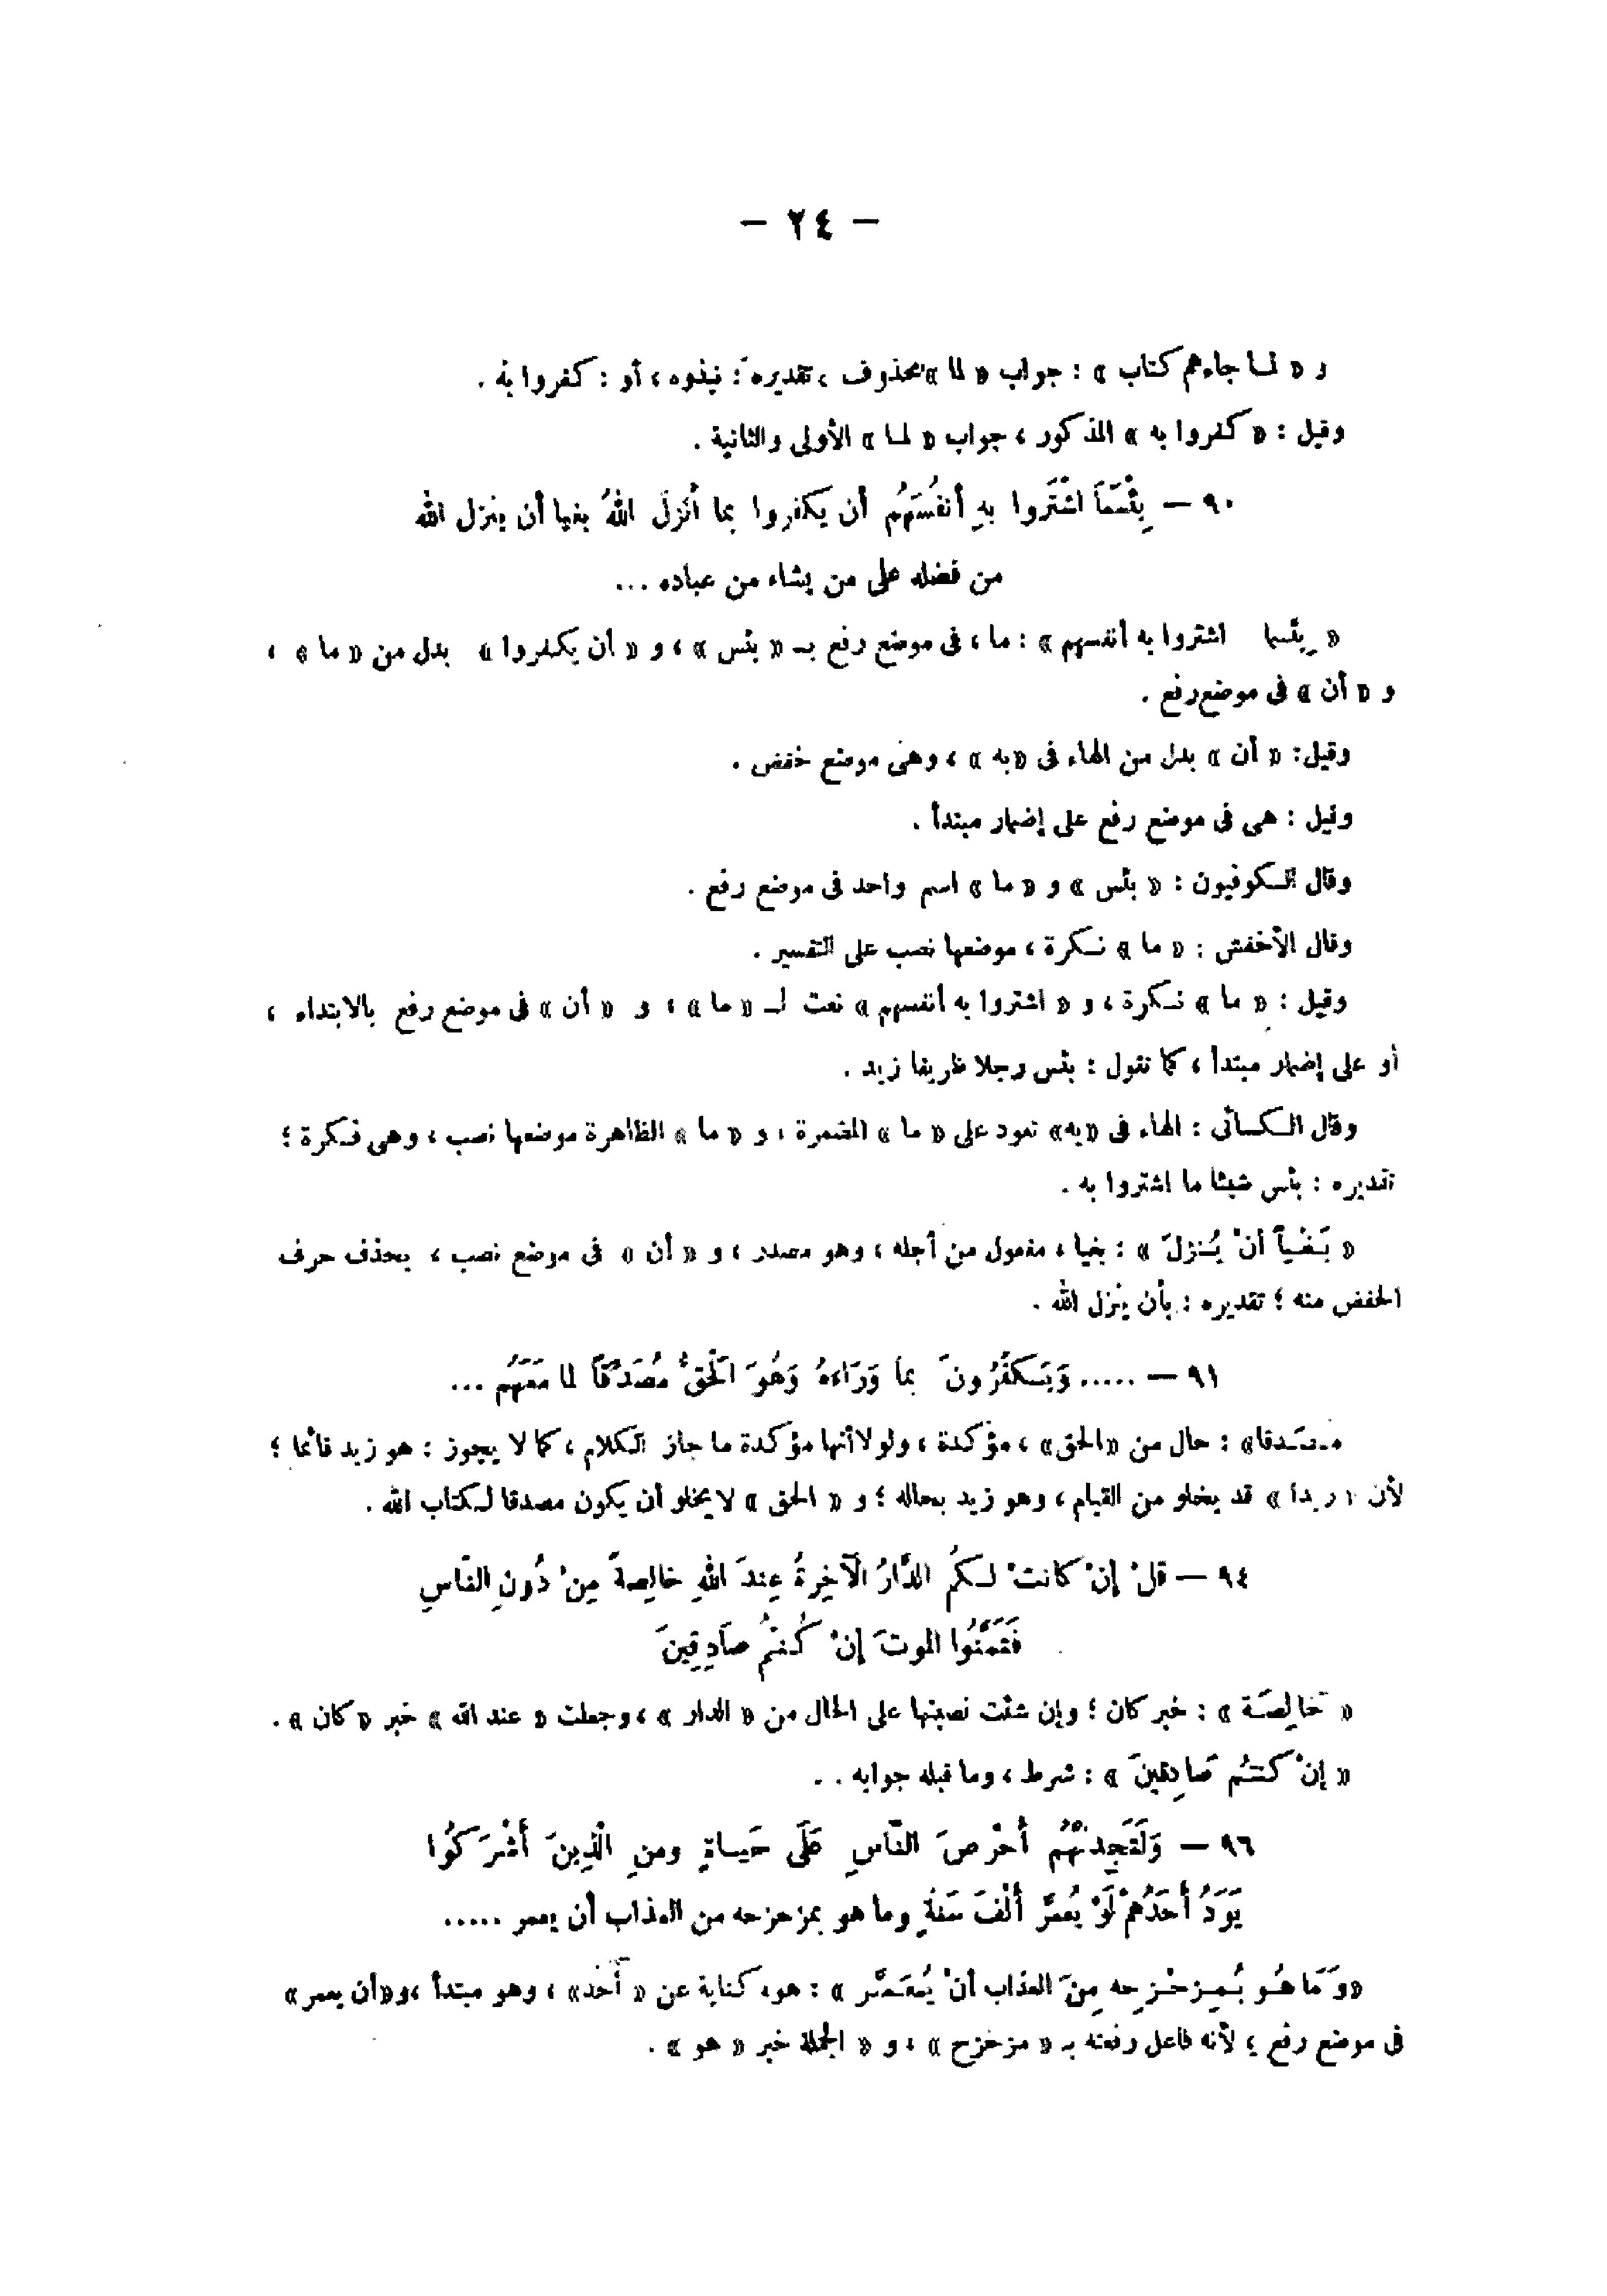 — ٢٤ —
و « لما جاءهم كتاب » : جواب « لما » محذوف ، تقديره : نبذوه ، أو : كفروا به .
وقيل : « كفروا به » المذكور ، جواب « لما » الأولى والثانية .
٩٠ — بِئْسَمَا اشْتَروا بهِ أنفُسَهُم أن يكفروا بما أنزلَ اللهُ بغيا أن ينزل الله
من فضله على من يشاء من عباده ...
« بِئسما اشتروا به أنفسهم » : ما ، فى موضع رفع بـ « بئس » ، و « أن يكفروا » بدل من « ما » ،
و « أن » فى موضع رفع .
وقيل : « أن » بدل من الهاء فى « به » ، وهى موضع خفض .
وقيل : هى فى موضع رفع على إضمار مبتدأ .
وقال الكوفيون : « بئس » و « ما » اسم واحد فى موضع رفع .
وقال الأخفش : « ما » نكرة ، موضعها نصب على التفسير .
وقيل : « ما » نكرة ، و « اشتروا به أنفسهم » نعت لـ « ما » ، و « أن » فى موضع رفع بالابتداء ،
أو على إضمار مبتدأ ، كما تقول : بئس رجلا ظريفا زيد .
وقال الكسائى : الهاء فى « به » تعود على « ما » المضمرة ، و « ما » الظاهرة موضعها نصب ، وهى نكرة ؛
تقديره : بئس شيئا ما اشتروا به .
« بَغْياً أنْ يُنزلَ » : بغيا ، مفعول من أجله ، وهو مصدر ، و « أن » فى موضع نصب ، بحذف حرف
الخفض منه ؛ تقديره : بأن ينزل الله .
٩١ — ..... وَيَكفُرُونَ بما وَرَاءهُ وَهُوَ الْحَقُّ مُصَدِّقاً لما مَعَهُم ...
مصَدقا» : حال من «الحق» ، مؤكدة ، ولولا أنها مؤكدة ما جاز الكلام ، كما لا يجوز : هو زيد قائما ؛
لأن « زيدا » قد يخلو من القيام ، وهو زيد بحاله ؛ و « الحق » لا يخلو أن يكون مصدقا لكتاب الله .
٩٤ — قلْ إنْ كانتْ لكمُ الدَّارُ الْآخِرةُ عِندَ اللهِ خالِصةً مِنْ دُونِ النَّاسِ
فَتَمَنَّوُا الموتَ إنْ كُنتُم صَادِقِينَ
« خَالِصَة » : خبر كان ؛ وإن شئت نصبتها على الحال من « الدار » ، وجعلت « عند الله » خبر « كان » .
« إنْ كنتُم صَادِقينَ » : شرط ، وما قبله جوابه . .
٩٦ — وَلَتَجِدنَّهُم أحْرصَ النَّاسِ عَلَى حَياةٍ ومنِ الَّذِينَ أشْرَكُوا
يَوَدُّ أَحَدُهمْ لَوْ يُعمَّرُ أَلْفَ سَنةٍ وما هو بمزحزحه من العذاب أن يعمر .....
«وَمَا هُو بُمِزحْزحِه مِنَ العذاب أنْ يُعَمَّر » : هو، كناية عن « أحَد» ، وهو مبتدأ ،و«أن يعمر»
فى موضع رفع ؛ لأنه فاعل رفعته بـ « مزحزح » ، و « الجملة خبر « هو » .